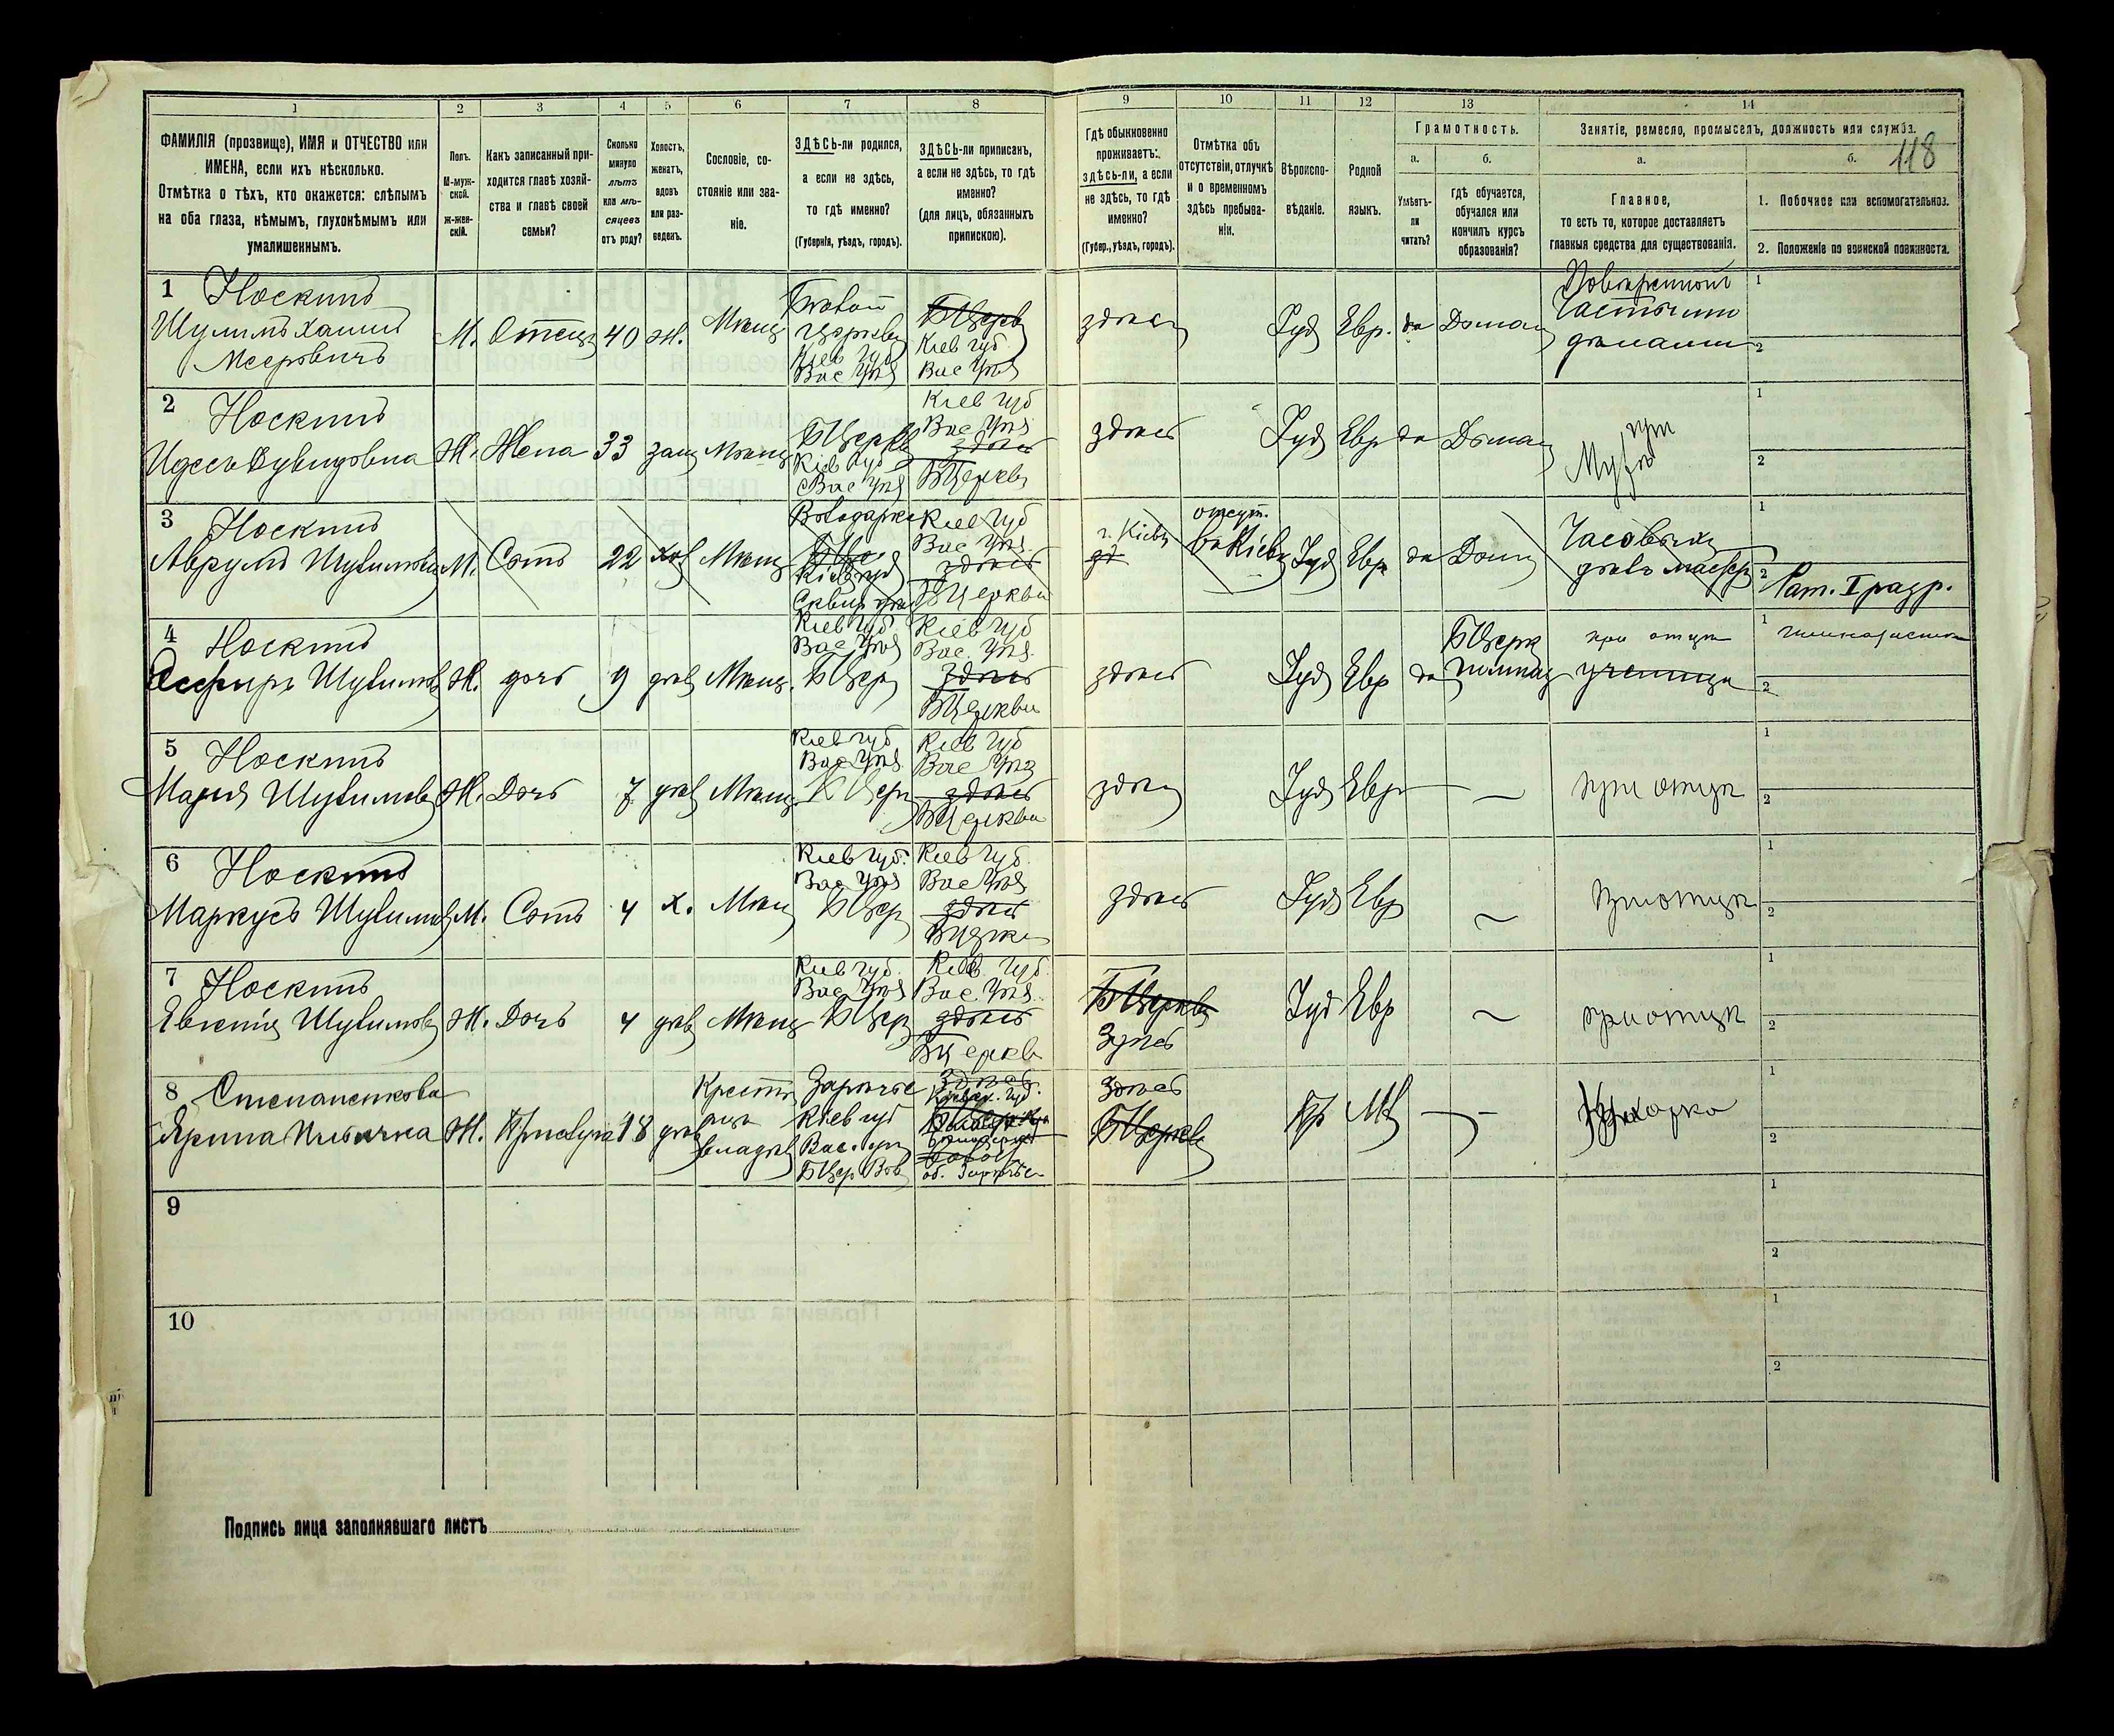 1 2 3 4 5 6 7 8 9 10 11 12 13 14
118
ФАМИЛІЯ (прозвище), ИМЯ и ОТЧЕСТВО или
ИМЕНА, если ихъ нѣсколько.
Отмѣтка о тѣхъ, кто окажется: слѣпымъ
на оба глаза, нѣмымъ, глухонѣмымъ или
умалишеннымъ.
Полъ.
М-муж-
ской.
Ж-жен-
скій.
Какъ записанный при-
ходится главѣ хозяй-
ства и главѣ своей
семьи?
Сколько
минуло
лѣтъ
или мѣ-
сяцевъ
отъ роду?
Холостъ,
женатъ,
вдовъ
или раз-
веденъ.
Сословіе, со-
стояніе или зва-
ніе.
ЗДѢСЬ-ли родился,
а если не здѣсь,
то гдѣ именно?
(Губернія, уѣздъ, городъ).
ЗДѢСЬ-ли приписанъ,
а если не здѣсь, то гдѣ
именно?
(для лицъ, обязанныхъ
припискою).
Гдѣ обыкновенно
проживаетъ:
здѣсь-ли, а если
не здѣсь, то гдѣ
именно?
(Губер., уѣздъ, городъ).
Отмѣтка объ
отсутствіи, отлучкѣ
и о временномъ
здѣсь пребыва-
ніи.
Вѣроиспо-
вѣданіе.
Родной
языкъ.
Грамотность.
а.
Умѣетъ-
ли
читать?
б.
гдѣ обучается,
обучался или
кончилъ курсъ
образованія?
Занятіе, ремесло, промыселъ, должность или служба.
а.
Главное,
то есть то, которое доставляетъ
главныя средства для существованія.
б.
1. Побочное или вспомогательное.
2. Положеніе по воинской повинности.
1 Носкинъ
Шулимъ Хаимъ
Мееровичъ
М. Отецъ 40 ж. Мѣщ
Церковь
Кіев Губ
Вас Уѣз
БЦерк
Кіев Губ
Вас Уѣз
здѣсь
Іуд Евр. да Дома
1
2
2 Носкинъ
Ж. Жена 33 зам Мѣщ
БЦерк
Кіев Губ
Вас Уѣз
Кіев Губ
Вас Уѣз
здѣсь
БЦеркви
здѣсь
Іуд Евр да Дома
при
Мужѣ
1
2
3 Носкинъ
Аврумъ
М. Сынъ 22 хол Мѣщ
Володарка
Кіев губ
Сквир уѣз
Кіев Губ
Вас Уѣз
здѣсь
БЦеркви
г. Кіевъ
зд
отсут.
въ Кіевѣ
Іуд Евр да Дома
Часовыхъ
дѣлъ мастер
1
2 Рат. I разр.
4 Носкинъ
Есфирь
Ж. дочь 9 дѣв Мѣщ.
Кіев Губ
Вас Уѣз
БЦер
Кіев Губ
Вас. Уѣз.
здѣсь
БЦеркви
здѣсь
Іуд Евр да
БЦерк
гимназ
при отцѣ
ученица
1 гимназистка
2
5 Носкинъ
Марія
Ж. Дочь 7 дѣв Мѣщ
Кіев Губ
Вас Уѣз
БЦер
Кіев Губ
Вас Уѣз
здѣсь
БЦеркви
здѣсь
Іуд Евр — —
при отцѣ
1
2
6 Носкинъ
Маркусъ
М. Сынъ 4 х. Мѣщ
Кіев Губ.
Вас Уѣз
БЦер
Кіев Губ
Вас Уѣз
здѣсь
здѣсь
Іуд Евр —
при отцѣ
1
2
7 Носкинъ
Евгенія
Ж. Дочь 4 дѣв Мѣщ
Кіев Губ.
Вас Уѣз
БЦер
Кіев. Губ
Вас. Уѣз.
здѣсь
БЦеркв
БЦерковь
Здѣсь
Іуд Евр —
при отцѣ
1
2
8 Степаненкова
Ярина
Ж. Прислуга 18 дѣв
Зарѣчье
Кіев губ
Вас. уѣз
БЦер Вол
Здѣсь
об. Зарѣчье
Здѣсь
БЦерков
Пр М — —
Кухарка
1
2
9
1
2
10
1
2
Подпись лица заполнявшаго листъ